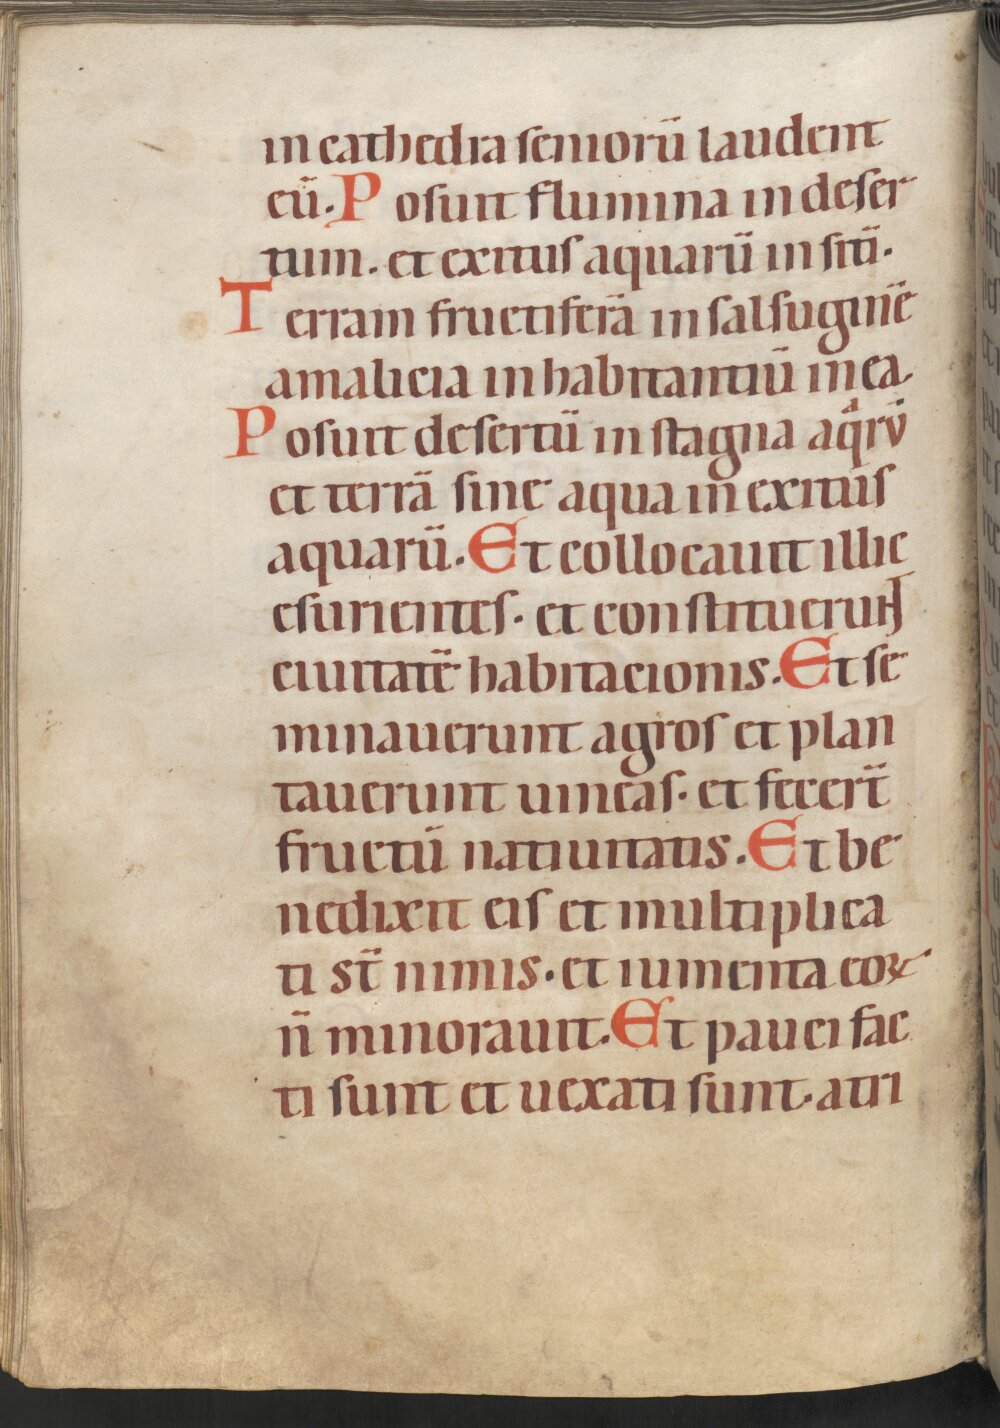 in cathedra seniorū laudent
eū. Posuit flumina in deser
tum. et exitus aquarū in sitī.
Terram fructiferā in salsuginē
amalicia inhabitantiū in ea.
Posuit desertū in stagna aq̄rū
et terrā sine aqua in exitus
aquarū. Et collocauit illic
esurientes. et constituerunt
ciuitatē habitacionis. Et se
minauerunt agros et plan
tauerunt uineas. et fecer̄t
fructū natiuitatis. Et be
nedixit eis et multiplica
ti st̄ nimis. et iumenta eoꝝ
n̄ minorauit. Et pauci fac
ti sunt et uexati sunt. atri